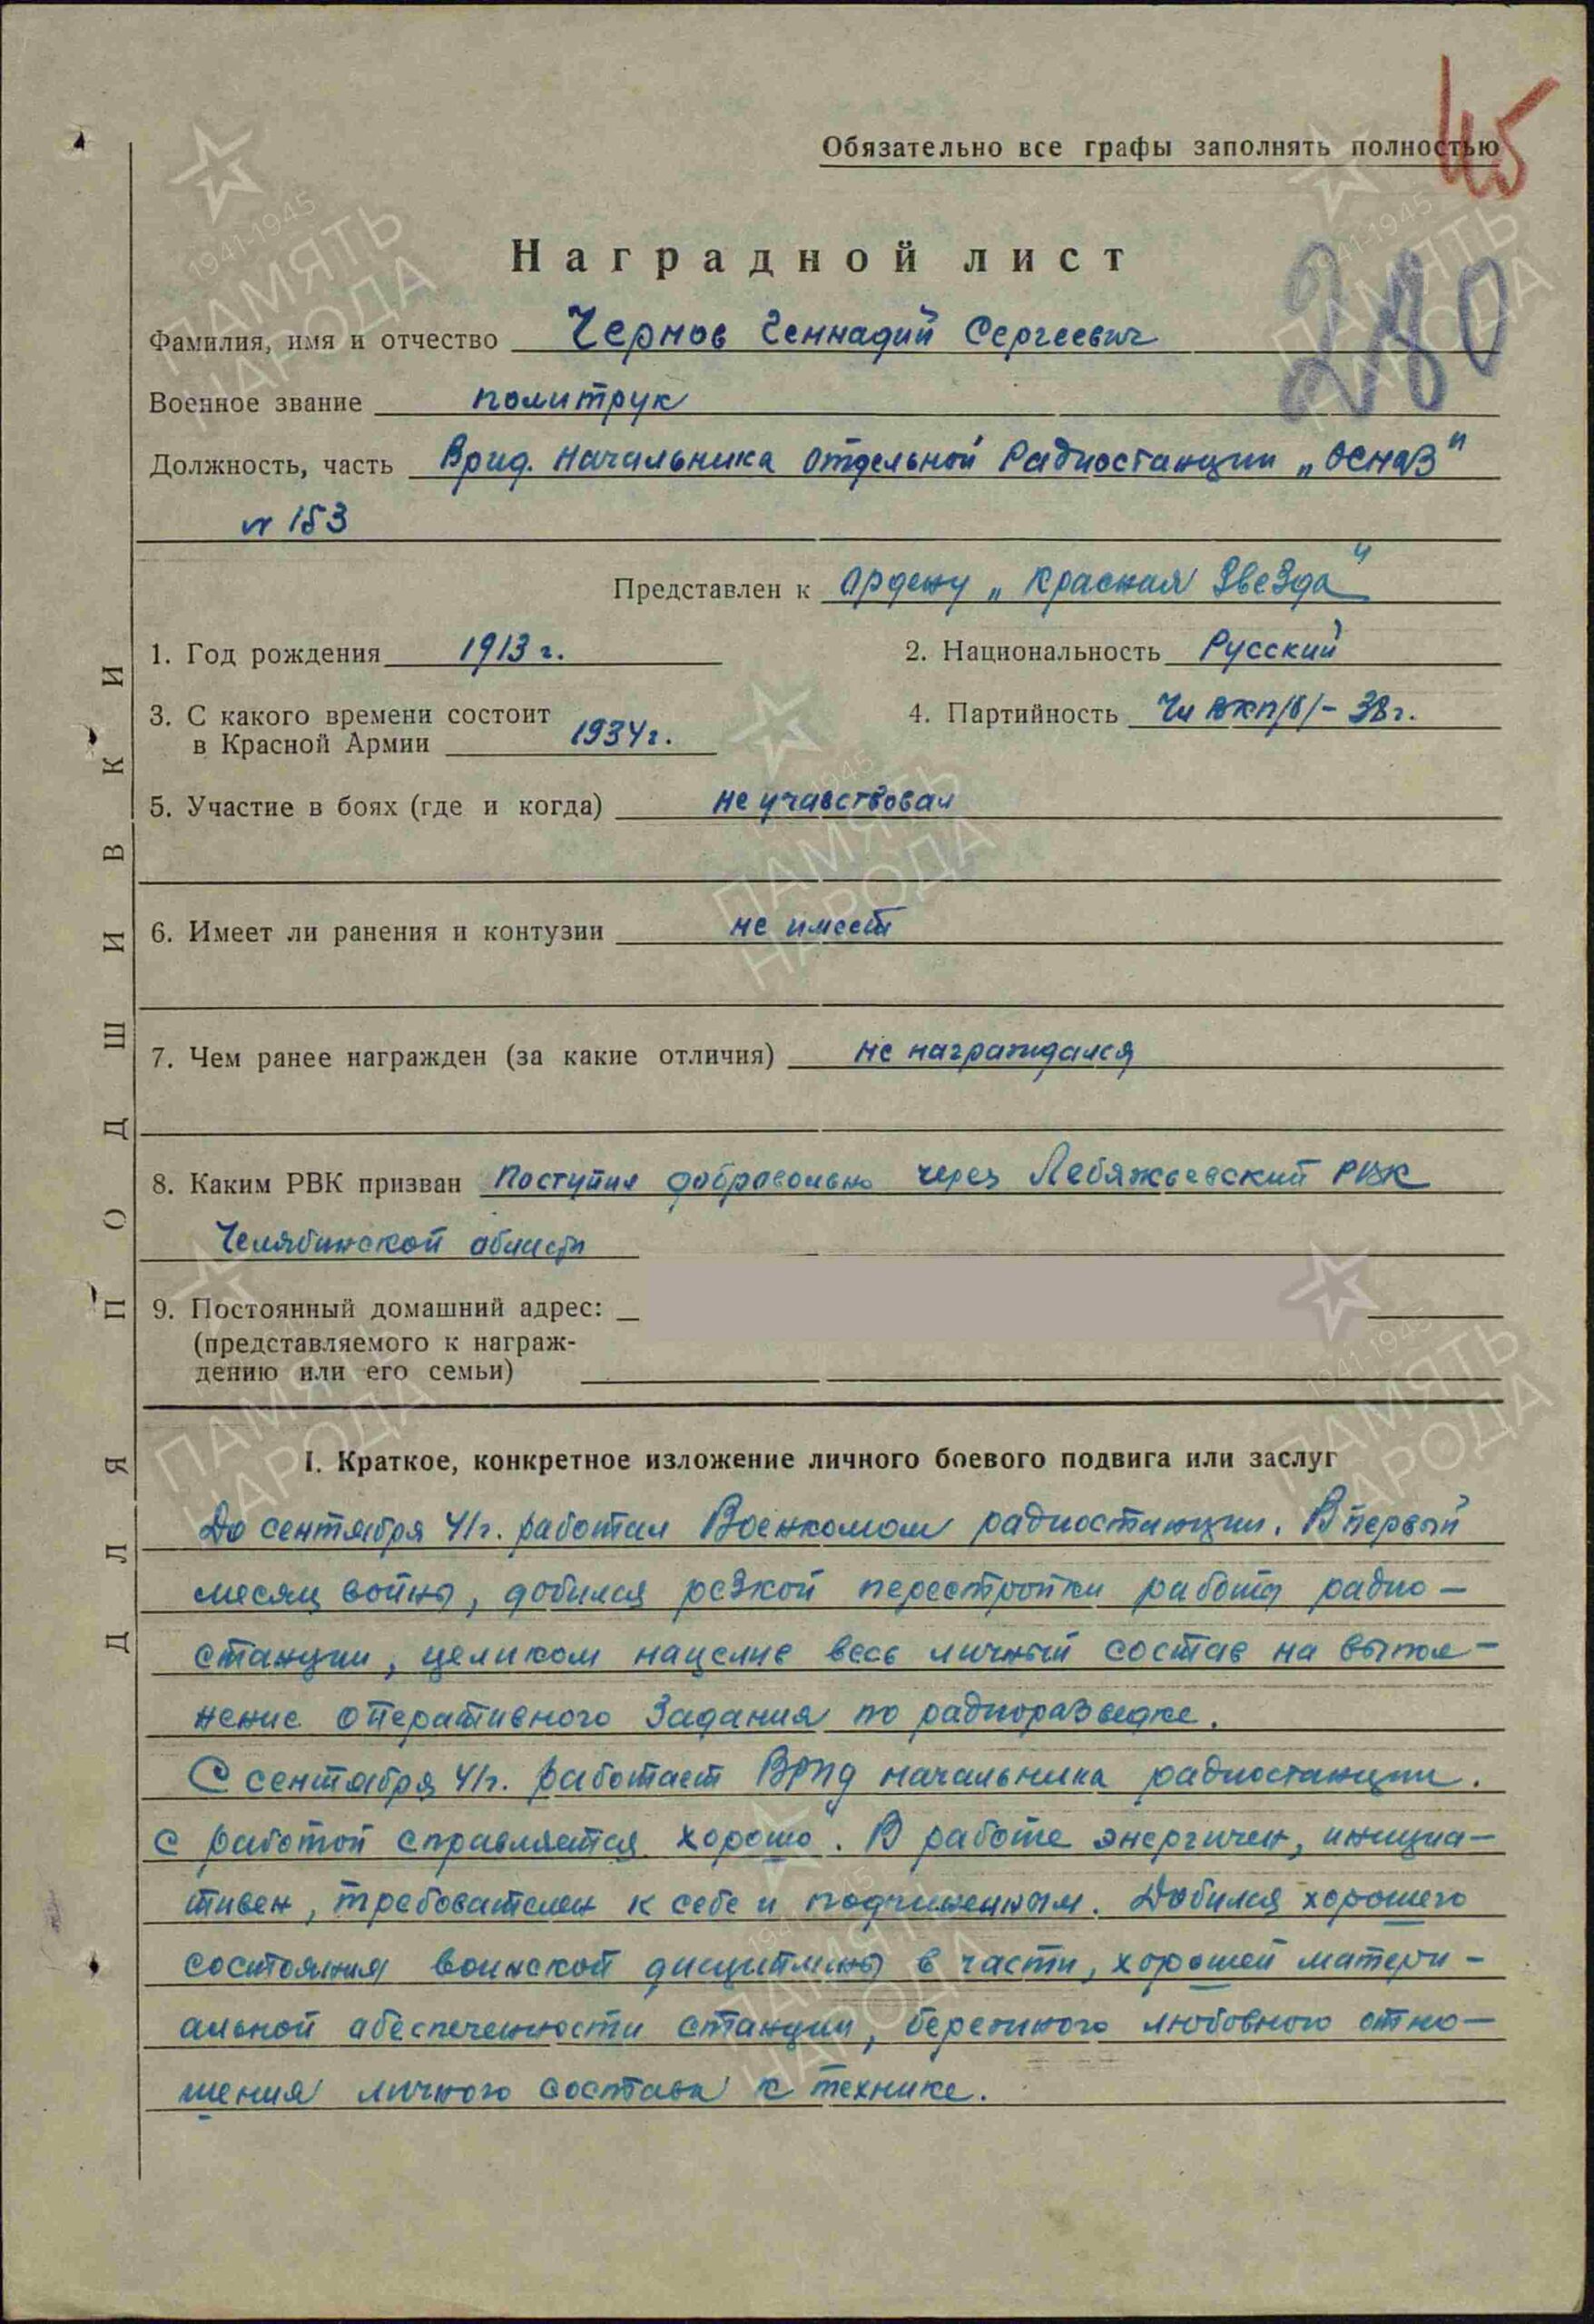 45
Обязательно все графы заполнять полностью
Наградной лист
280
Фамилия, имя и отчество Чернов Геннадий Сергеевич
Военное звание политрук
Должность, часть Врид. Начальника отдельной Радиостанции „ОСНАЗ"
№ 153
Представлен к ордену „Красная Звезда"
1. Год рождения 1913 г. 2. Национальность Русский
3. С какого времени состоит
в Красной Армии 1934 г. 4. Партийность Чл ВКП/б/ – 38 г.
5. Участие в боях (где и когда) не участвовал
6. Имеет ли ранения и контузии не имеет
7. Чем ранее награжден (за какие отличия) не награждался
8. Каким РВК призван Поступил добровольно через Лебяжьевский РВК
Челябинской области
9. Постоянный домашний адрес:
(представляемого к награж-
дению или его семьи)
I. Краткое, конкретное изложение личного боевого подвига или заслуг
До сентября 41 г. работал Военкомом радиостанции. В первый
месяц войны, добился резкой перестройки работы радио-
станции, целиком нацелив весь личный состав на выпол-
нение оперативного задания по радиоразведке.
С сентября 41 г. работает ВРИД начальника радиостанции.
С работой справляется „хорошо". В работе энергичен, инициа-
тивен, требователен к себе и подчиненным. Добился хорошего
состояния воинской дисциплины в части, хорошей матери-
альной обеспеченности станции, бережного любовного отно-
шения личного состава к технике.
ДЛЯ ПОДШИВКИ
1941-1945
ПАМЯТЬ
НАРОДА